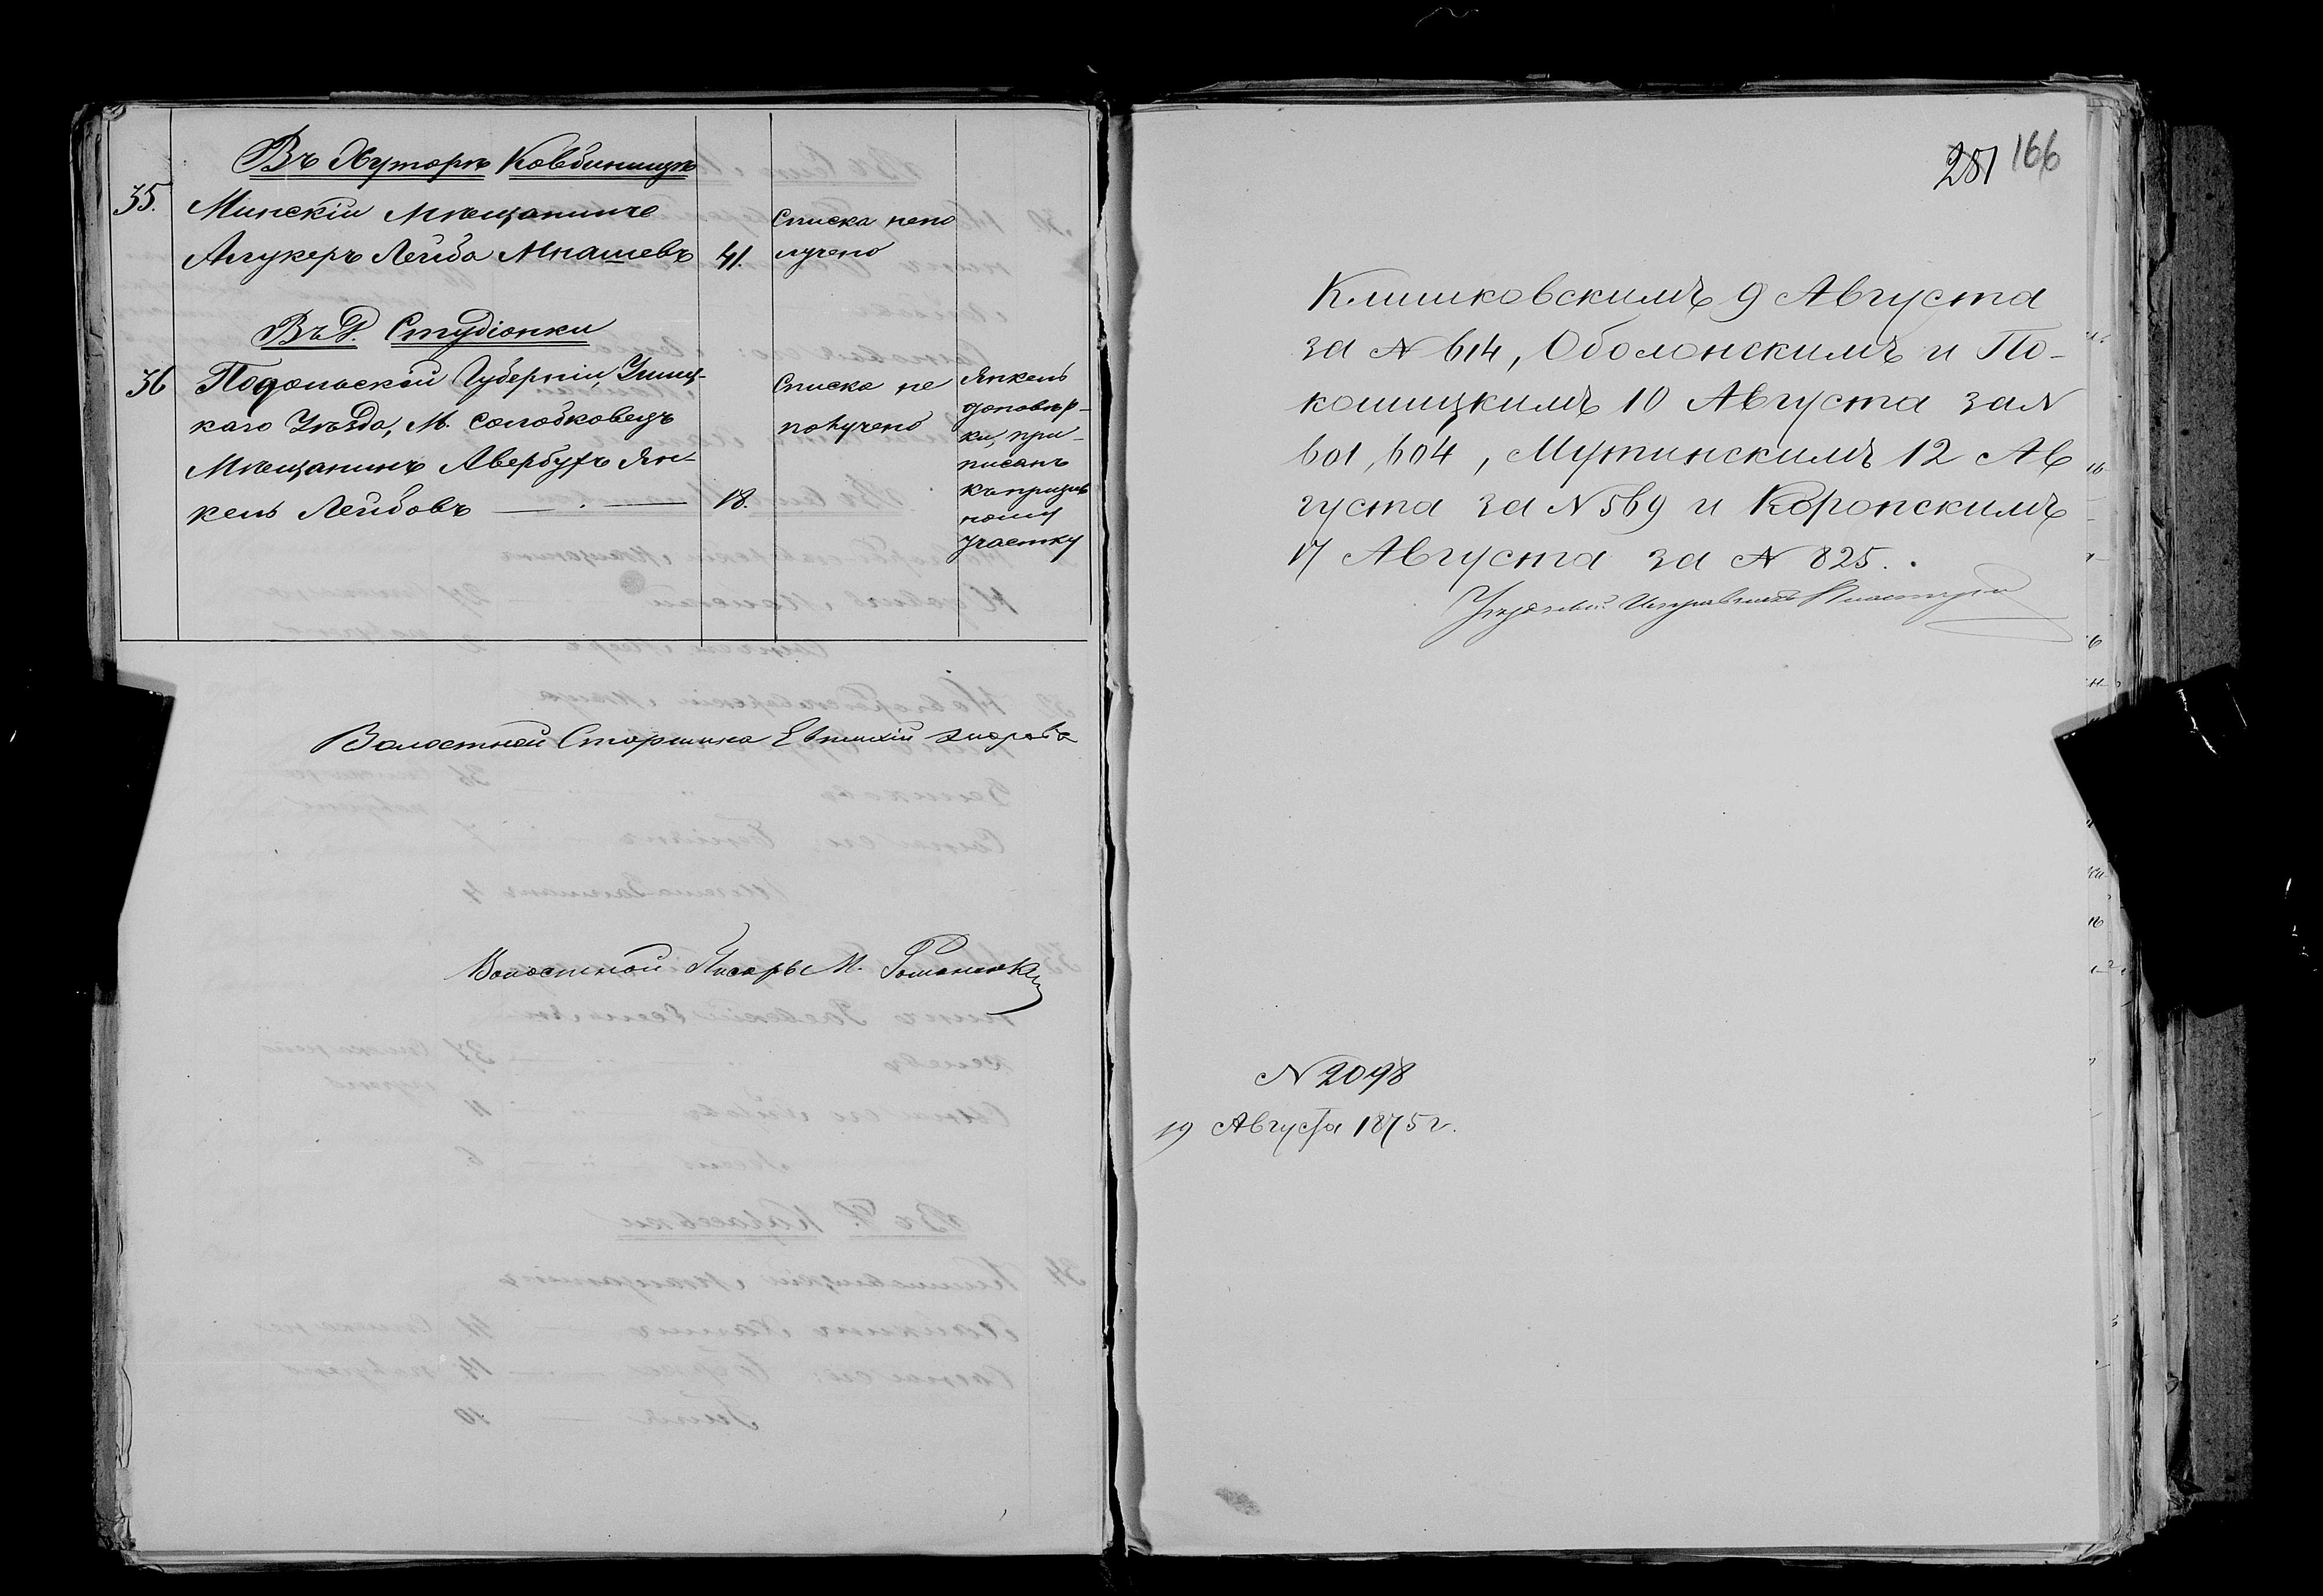 Въ Хуторѣ Ковбиницѣ
35. Минскій Мѣщанинъ
Алукеръ Лейба Мнашевъ 41. Списка непо
лучено
Въ Д. Студіонки
36 Подольской Губерніи, Ушиц-
каго Уѣзда, М. Солобковецъ
Мѣщанинъ Авербухъ Ян-
кель Лейбовъ — . — 18.
Списка не
получено
Янкель
доповѣр-
ки, при-
писанъ
къ призыв
ному
участку
Волостной Старшина Евтихій
Волостной Писарь М. Романенко
281 166
Клишковскимъ 9 Августа
за N 614, Оболонскимъ и По-
кошицкимъ 10 Августа за N
601, 604, Мутинскимъ 12 Ав
густа за N 569 и Коропскимъ
17 Августа за N 825.
Уѣздный Исправникъ
N 2098
19 Августа 1875 г.